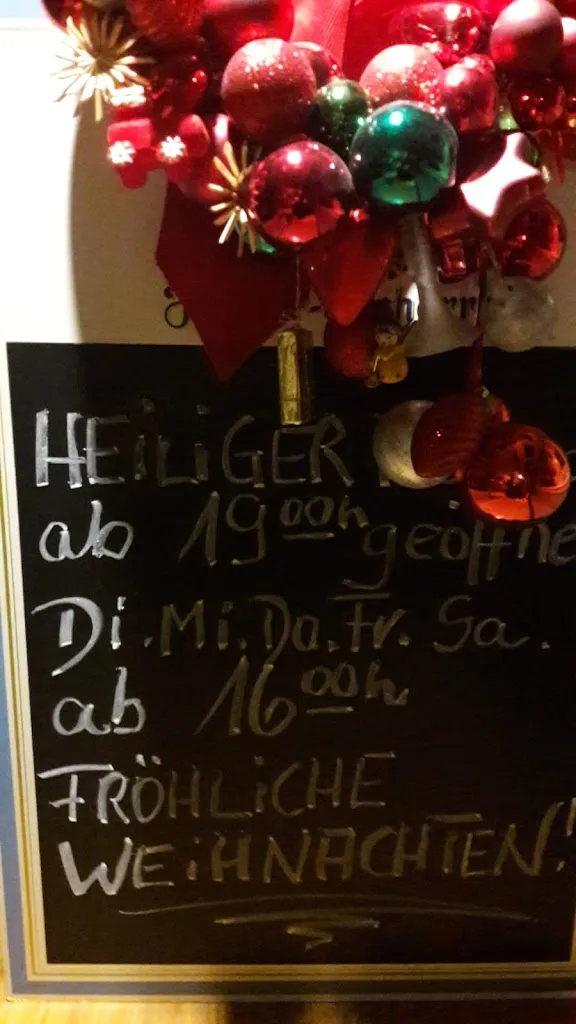 HEiLiGER
ab 19 00h geöffne
Di. Mi. Do. Fr. Sa.
ab 16 00h
FRÖHLiCHE
WEiHNACHTEN!